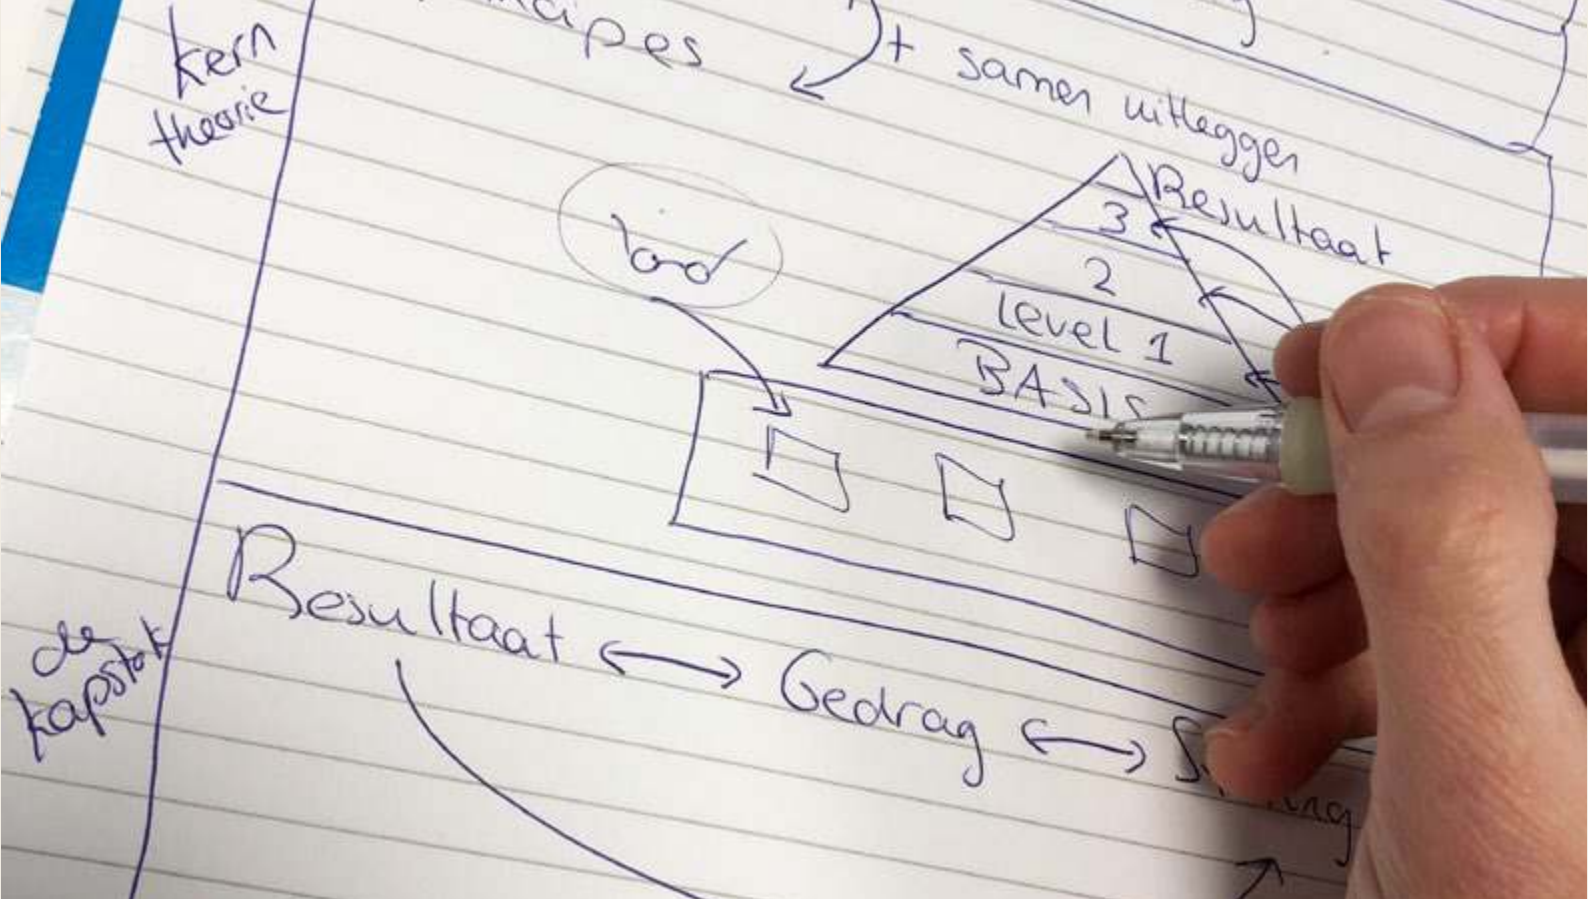 kern
theorie
+ samen uitleggen
Resultaat
3
2
Level 1
BASIS
de
kapstok
Resultaat ↔ Gedrag ↔